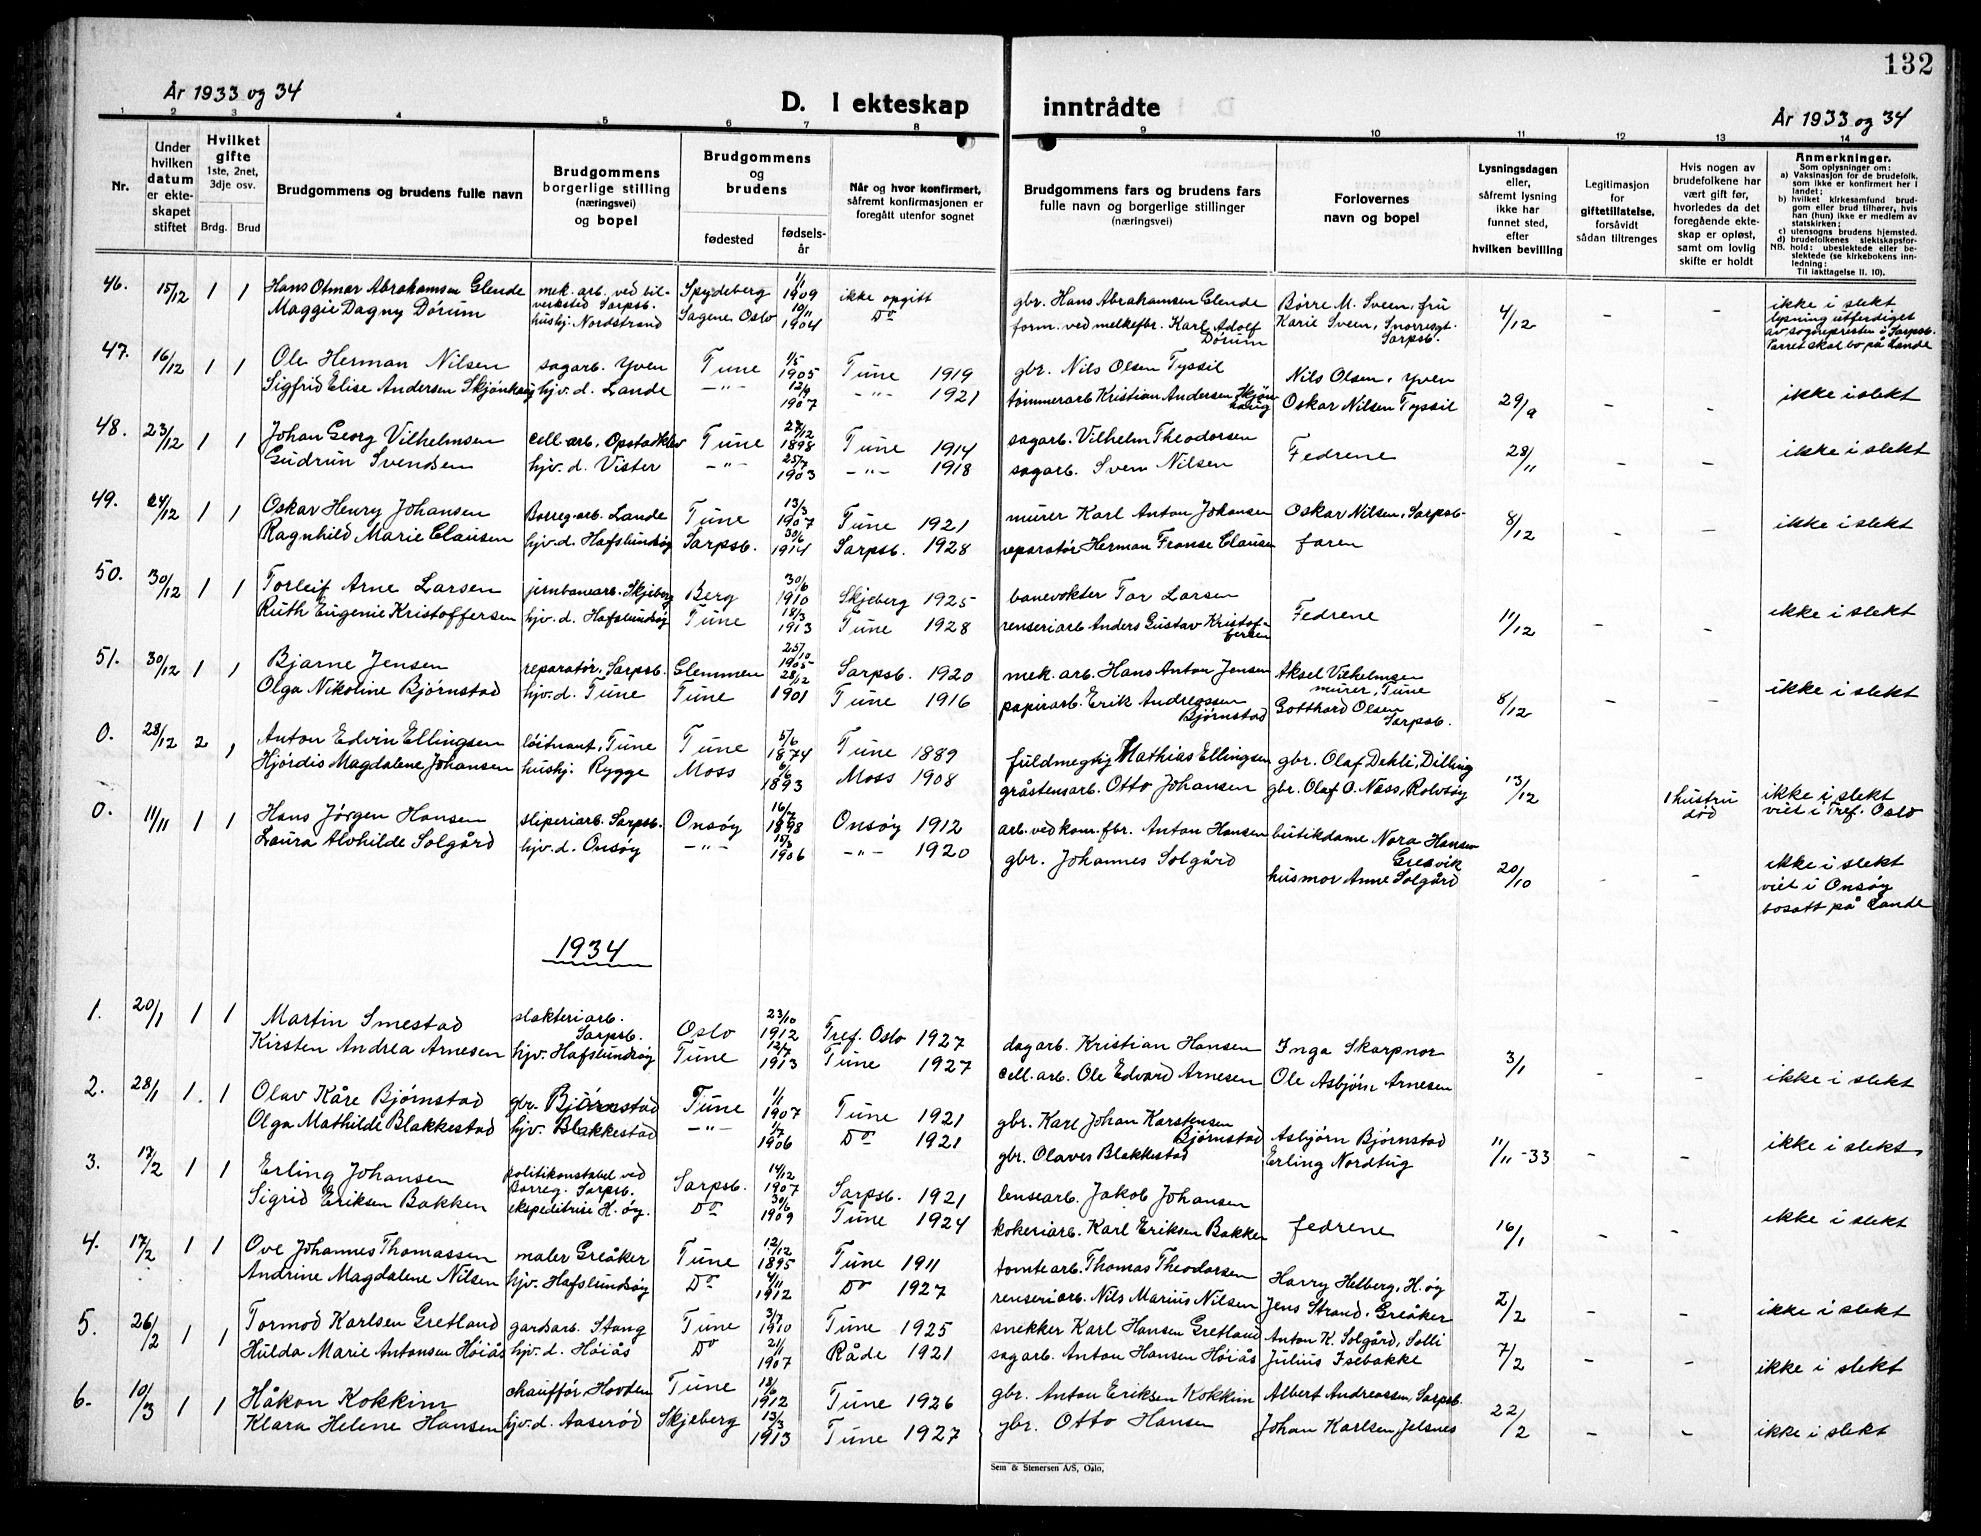 132
År 1933 og 34
D. I ekteskap inntrådte
År 1933 og 34
1 2 3 4 5 6 7 8 9 10 11 12 13 14
Nr.
Under hvilken datum er ekteskapet stiftet
Hvilket gifte
1ste, 2net, 3dje osv.
Brdg. Brud
Brudgommens og brudens fulle navn
Brudgommens borgerlige stilling (næringsvei) og bopel
Brudgommens og brudens
fødested
fødselsår
Når og hvor konfirmert, såfremt konfirmasjonen er foregått utenfor sognet
Brudgommens fars og brudens fars fulle navn og borgerlige stillinger (næringsvei)
Forlovernes navn og bopel
Lysningsdagen eller, såfremt lysning ikke har funnet sted, efter hvilken bevilling
Legitimasjon for giftetillatelse, forsåvidt sådan tiltrenges
Hvis nogen av brudefolkene har vært gift før, hvorledes da det foregående ekteskap er opløst, samt om lovlig skifte er holdt
Anmerkninger.
Som oplysninger om:
a) Vaksinasjon for de brudefolk, som ikke er konfirmert her i landet;
b) hvilket kirkesamfund brudgom eller brud tilhører, hvis han (hun) ikke er medlem av statskirken;
c) utensogns brudens hjemsted.
d) brudefolkenes slektskapsforhold: ubeslektede eller beslektede (se kirkebokens innledning:
NB. Til iakttagelse II. 10).
46. 15/12 1 1 Hans Otmar Abrahamsen Glende mek. arb. ved bilverksted Sarpsb. Spydeberg 1/1 1909 ikke opgitt gbr. Hans Abrahamsen Glende Børre M. Sveen, fru 4/12 - - ikke i slekt
Maggie Dagny Dørum hushj. Nordstrand Sagene, Oslo 10/11 1904 Do form. ved melkefbr. Karl Adolf Dørum Karie Sveen, Snorresgt. Sarpsb. lysning utferdiget av sognepresten i Sarpsb. Parret skal bo på Lande
47. 16/12 1 1 Ole Herman Nilsen sagarb. Yven Tune 1/5 1905 Tune 1919 gbr. Nils Olsen Tyssil Nils Olsen, Yven 29/9 - - ikke i slekt
Sigfrid Elise Andersen Skjønhaug hjv. d. Lande -"- 12/9 1907 -"- 1921 tømmerarb Kristian Andersen Skjønhaug Oskar Nilsen Tyssil
48. 23/12 1 1 Johan Georg Vilhelmsen cell. arb. Opstadklev Tune 27/12 1898 Tune 1914 sagarb. Vilhelm Theodorsen Fedrene 28/11 - - ikke i slekt
Gudrun Svendsen hjv. d. Vister -"- 25/7 1903 -"- 1918 sagarb. Sven Nilsen
49. 24/12 1 1 Oskar Henry Johansen Borreg. arb. Lande Tune 13/3 1907 Tune 1921 murer Karl Anton Johansen Oskar Nilsen, Sarpsb. 8/12 - - ikke i slekt
Ragnhild Marie Clausen hjv. d. Hafslundsøy Sarpsb. 30/6 1914 Sarpsb. 1928 reparatør Herman Franse Clausen faren
50. 30/12 1 1 Torleif Arne Larsen jernbanearb. Skjeberg Berg 30/6 1910 Skjeberg 1925 banevokter Tor Larsen Fedrene 11/12 - - ikke i slekt
Ruth Eugenie Kristoffersen hjv. d. Hafslundsøy Tune 18/3 1913 Tune 1928 renseriarb Anders Gustav Kristoffersen
51. 30/12 1 1 Bjarne Jensen reparatør, Sarpsb. Glemmen 25/10 1905 Sarpsb. 1920 mek. arb. Hans Anton Jensen Aksel Vilhelmsen murer, Tune 8/12 - - ikke i slekt
Olga Nikoline Bjørnstad hjv. d. Tune Tune 28/12 1901 Tune 1916 papirarb. Erik Andreassen Bjørnstad Gotthard Olsen Sarpsb.
0. 28/12 2 1 Anton Edvin Ellingsen løitnant, Tune Tune 5/6 1874 Tune 1889 fuldmegtig Mathias Ellingsen gbr. Olaf Dehli, Dilling 13/12 1 hustru død ikke i slekt
Hjørdis Magdalene Johansen hushj. Rygge Moss 6/6 1893 Moss 1908 gråstensarb. Otto Johansen gbr. Olaf O. Næss, Rolvsøy viet i Tref. Oslo
0. 11/11 1 1 Hans Jørgen Hansen sliperiarb. Sarpsb. Onsøy 16/7 1898 Onsøy 1912 arb. ved konr. fbr. Anton Hansen butikdame Nora Hansen Gresvik 20/10 - - ikke i slekt
Laura Alvhilde Solgård hjv. d. Onsøy -"- 1906 -"- 1920 gbr. Johannes Solgård husmor Anne Solgård viet i Onsøy bosatt på Lande
1934
1. 20/1 1 1 Martin Smestad slakteriarb. Sarpsb. Oslo 23/10 1912 Tref. Oslo 1927 dagarb. Kristian Hansen Inga Skarpnor 3/1 - - ikke i slekt
Kirsten Andrea Arnesen hjv. Hafslundsøy Tune 12/7 1913 Tune 1927 cell. arb. Ole Edvard Arnesen Ole Asbjørn Arnesen
2. 28/1 1 1 Olav Kåre Bjørnstad gbr. Bjørnstad Tune 1/1 1907 Tune 1921 gbr. Karl Johan Karstensen Bjørnstad Asbjørn Bjørnstad 11/11-33 - - ikke i slekt
Olga Mathilde Blakkestad hjv. Blakkestad -"- 1/7 1906 Do 1921 gbr. Olaves Blakkestad Erling Nordtug
3. 17/2 1 1 Erling Johansen politikonstabel ved Borreg. Sarpsb. Sarpsb. 14/12 1907 Sarpsb. 1921 lensearb. Jakob Johansen fedrene 16/1 - - ikke i slekt
Sigrid Eriksen Bakken ekspeditrise H. øy. Do 30/6 1909 Tune 1924 kokeriarb. Karl Eriksen Bakken
4. 17/2 1 1 Ove Johannes Thomassen maler Greåker Tune 12/12 1895 Tune 1911 tomtearb. Thomas Theodorsen Harry Helberg, H. øy 2/2 - - ikke i slekt
Andrine Magdalene Nilsen hjv. Hafslundsøy Do 4/11 1912 Do 1927 renseriarb. Nils Marius Nilsen Jens Strand, Greåker
5. 26/2 1 1 Tormod Karlsen Gretland gardsarb. Stang Tune 3/7 1910 Tune 1925 snekker Karl Hansen Gretland Anton K. Solgård, Solli 7/2 - - ikke i slekt
Hulda Marie Antonsen Høiås hjv. d. Høiås Do 21/1 1907 Råde 1921 sagarb. Anton Hansen Høiås Julius Isebakke
6. 10/3 1 1 Håkon Kokkim chauffør, Hovden Tune 18/6 1912 Tune 1926 gbr. Anton Eriksen Kokkim Albert Andreassen, Sarpsb. 22/2 - - ikke i slekt
Klara Helene Hansen hjv. d. Aaserød Skjeberg 13/3 1913 Tune 1927 gbr. Otto Hansen Johan Karlsen, Jelsnes
Sem & Stenersen A/S, Oslo,